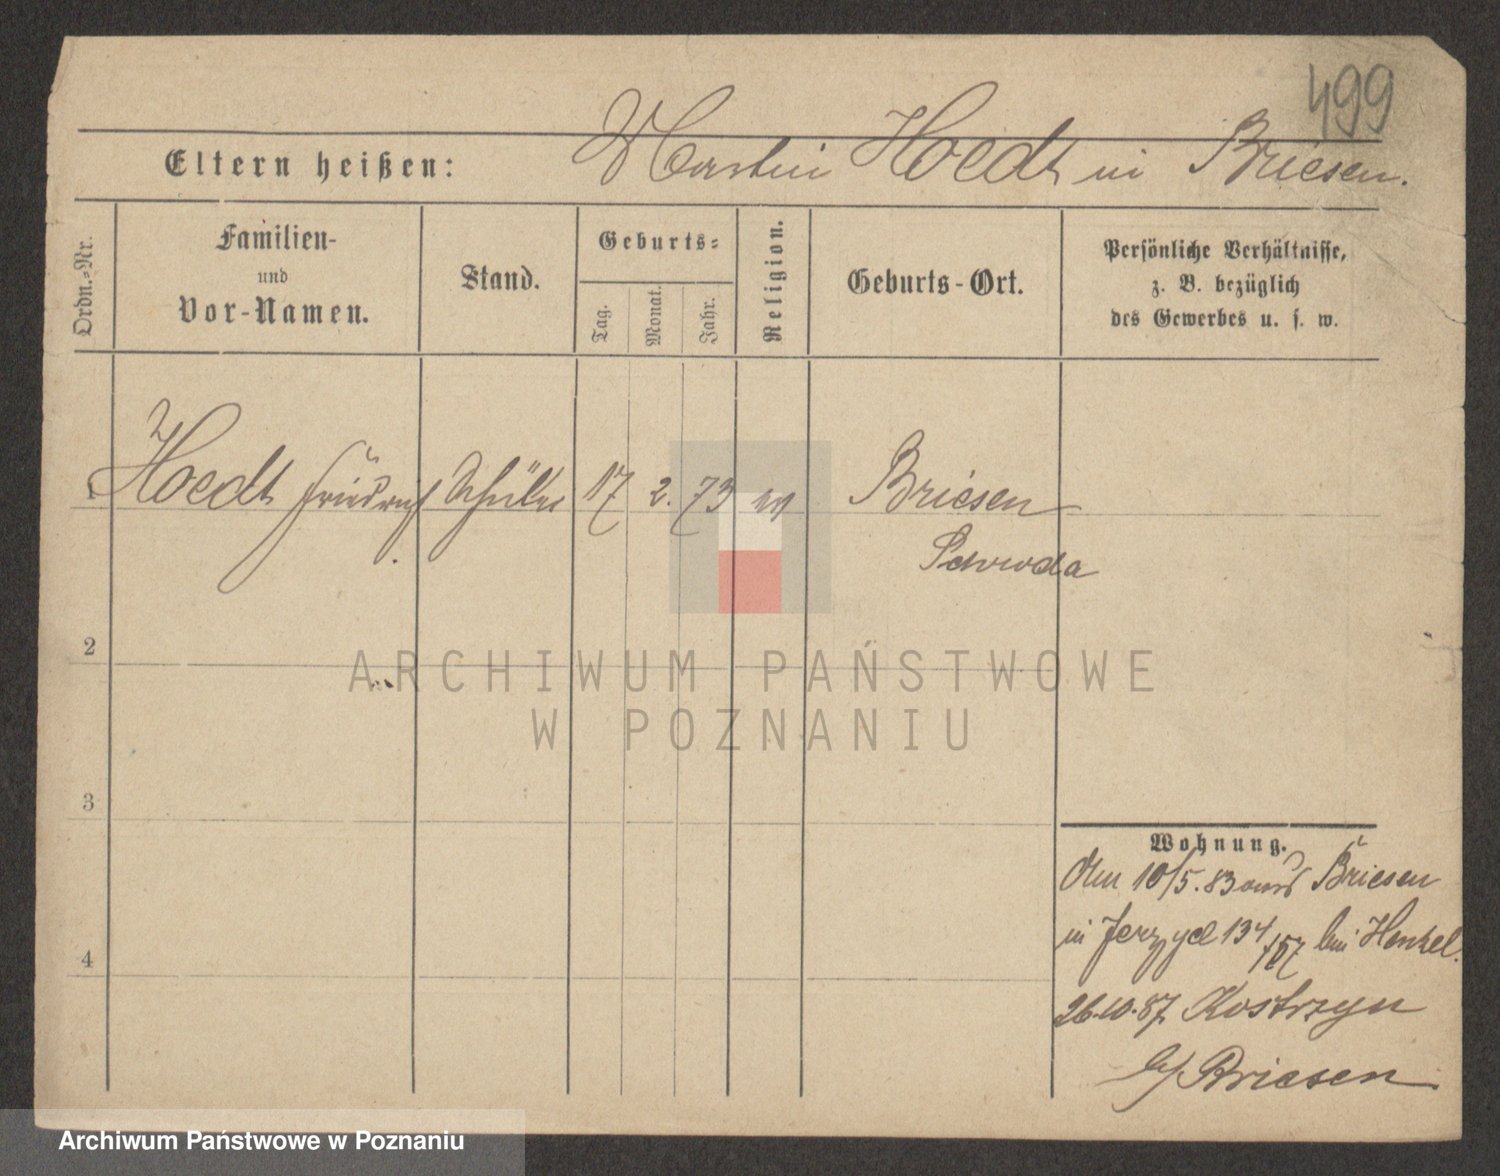 499
Eltern heißen: Martin Hoedt in Briesen.
Ordn.-Nr.
Familien-
und
Vor-Namen.
Stand.
Geburts-
Tag. Monat. Jahr.
Religion.
Geburts-Ort.
Persönliche Verhältnisse,
z. B. bezüglich
des Gewerbes u. s. w.
1 Hoedt Friedrich Schüler 17 2. 73 Briesen
Schroda
2
ARCHIWUM PAŃSTWOWE
W POZNANIU
3
Wohnung.
10/5. 83 aus Briesen
in Jerzyce 134/157 bei Henkel.
4
26.10.87. Kostrzyn
Briesen
Archiwum Państwowe w Poznaniu